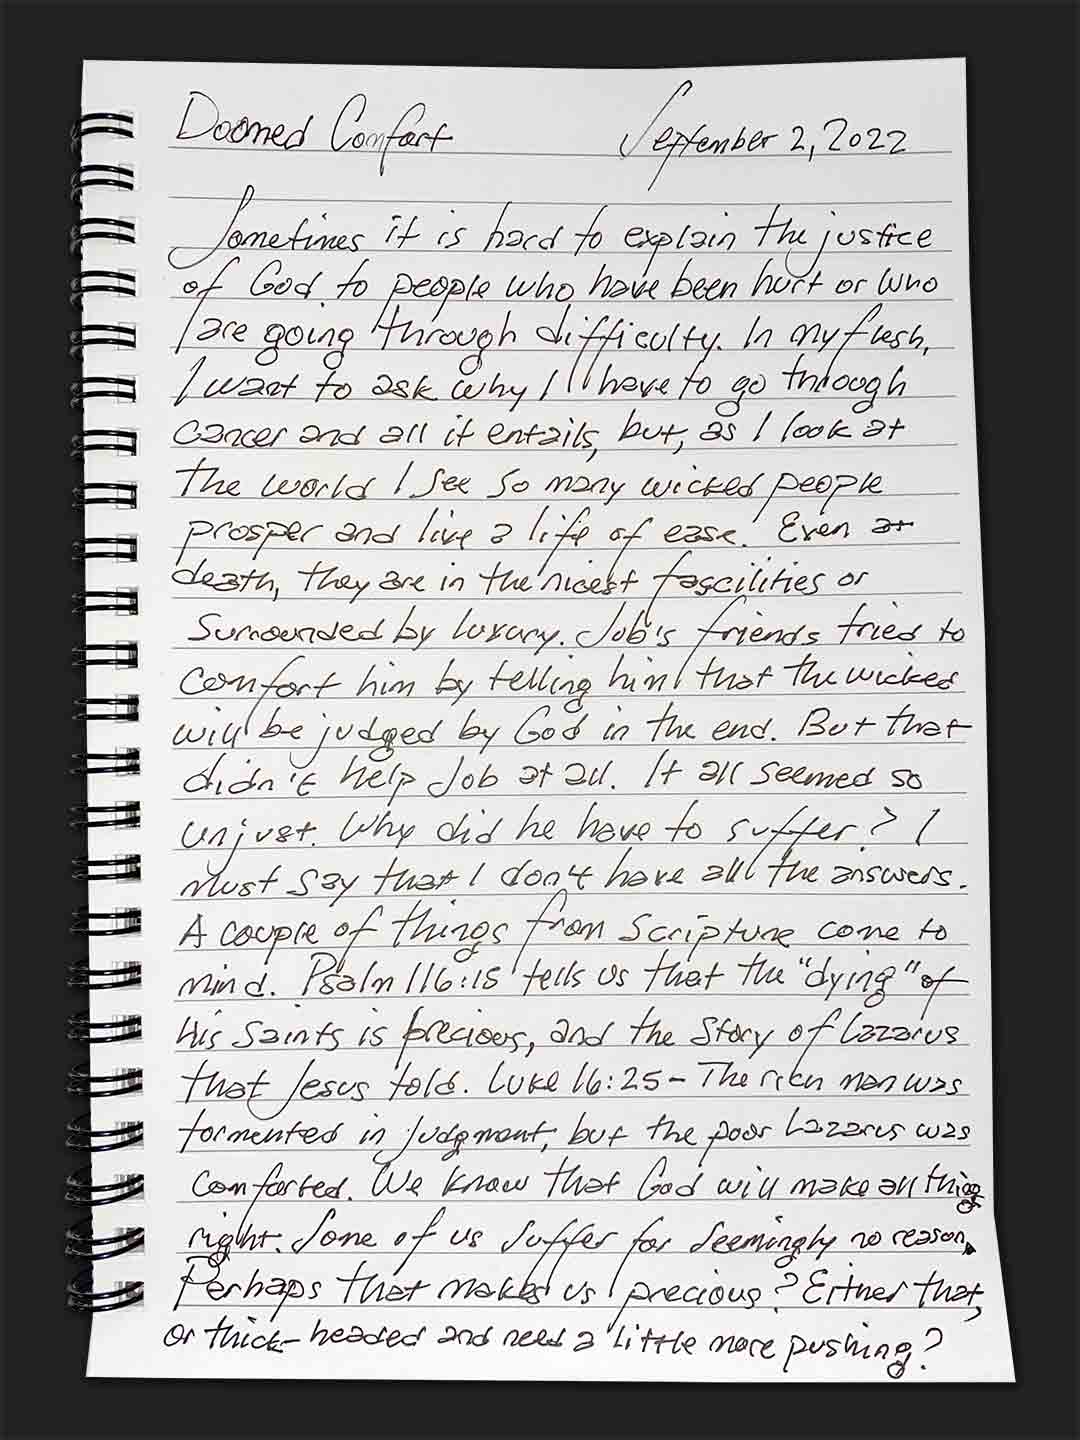 Doomed Comfort September 2, 2022
Sometimes it is hard to explain the justice
of God to people who have been hurt or who
are going through difficulty. In my flesh,
I want to ask why I have to go through
cancer and all it entails, but, as I look at
the world I see so many wicked people
prosper and live a life of ease. Even at
death, they are in the nicest fascilities or
surrounded by luxury. Job's friends tried to
comfort him by telling him that the wicked
will be judged by God in the end. But that
didn't help Job at all. It all seemed so
unjust. Why did he have to suffer? I
must say that I don't have all the answers.
A couple of things from Scripture come to
mind. Psalm 116:15 tells us that the "dying" of
His Saints is precious, and the story of Lazarus
that Jesus told. Luke 16:25 - The rich man was
tormented in judgment, but the poor Lazarus was
comforted. We know that God will make all things
right. Some of us suffer for seemingly no reason.
Perhaps that makes us precious? Either that,
or thick-headed and need a little more pushing?